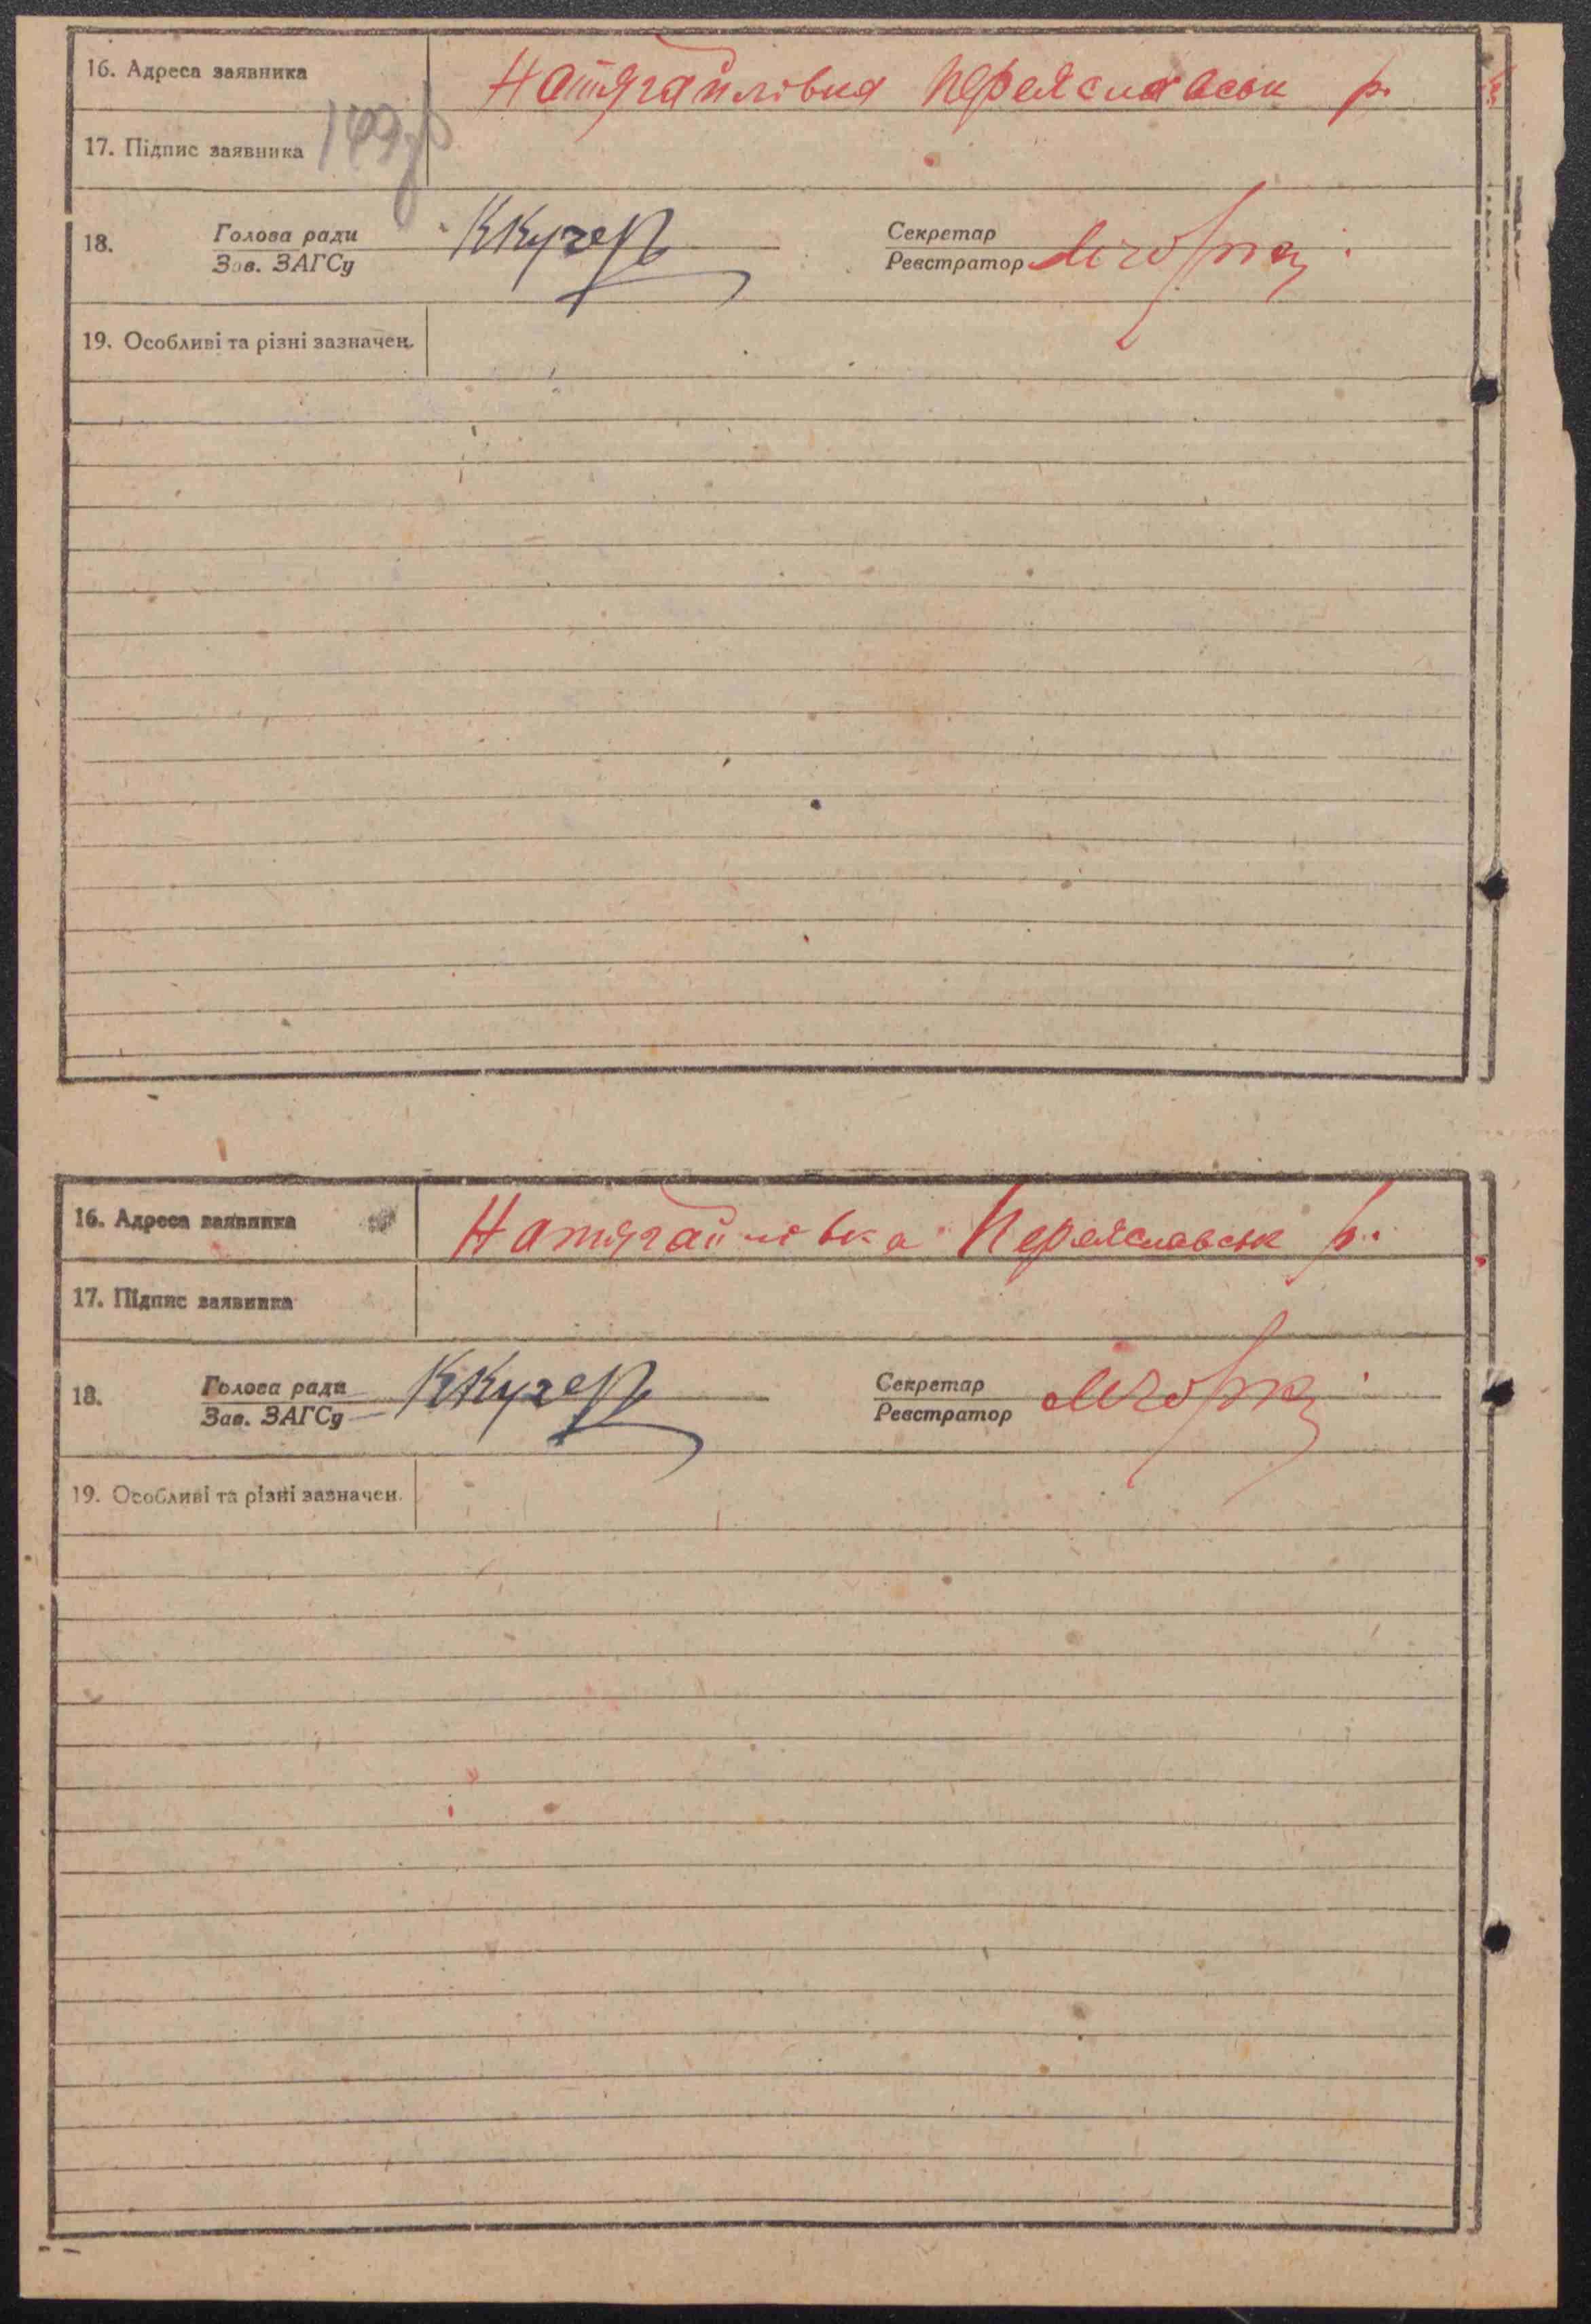 16. Адреса заявника Натягайлівка Переяславськ р.
17. Підпис заявника
18. Голова ради ККучер Секретар
Зав. ЗАГСу Реєстратор
19. Особливі та різні зазначен.
16. Адреса заявника Натягайлівка Переяславськ р.
17. Підпис заявника
18. Голова ради ККучер Секретар
Зав. ЗАГСу Реєстратор
19. Особливі та різні зазначен.